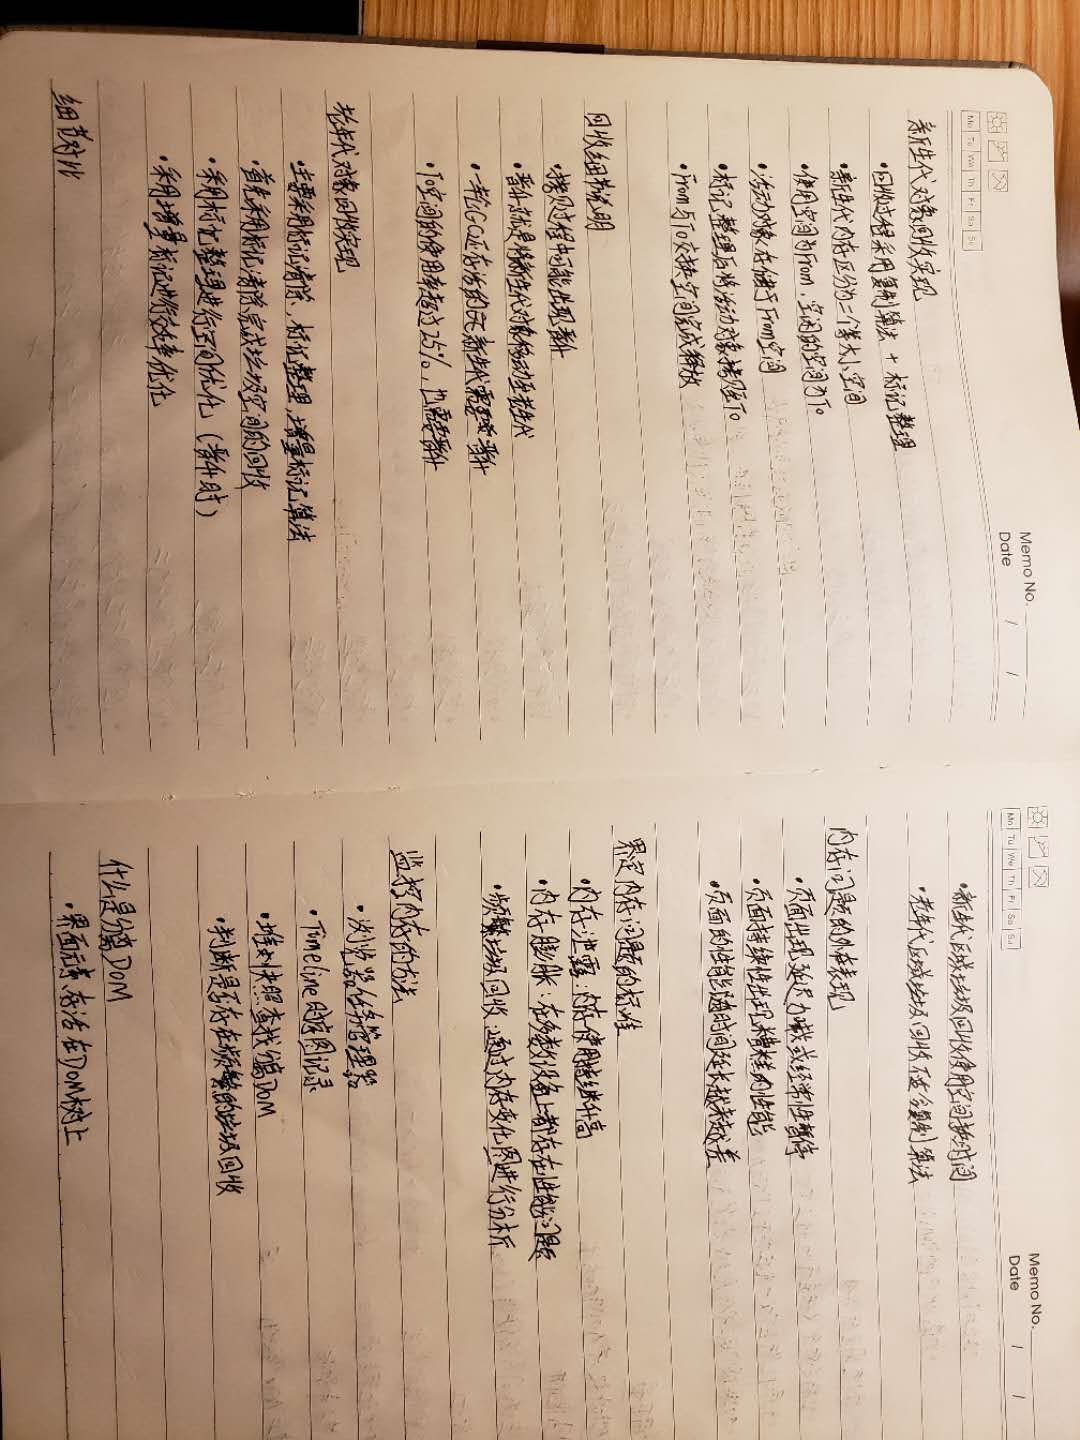 Memo No.
Mo Tu We Th Fr Sa Su
Date / /
新生代对象回收实现
·回收过程采用复制算法 + 标记整理
·新生代内存区分为二个等大小空间
·使用空间为From，空闲的空间为To
·活动对象存储于From空间
·标记整理后将活动对象拷贝至To
·From与To交换空间完成释放
回收细节说明
·拷贝过程中可能出现晋升
·晋升就是将新生代对象移动至老生代
·一轮GC还存活的新生代需要晋升
·To空间的使用率超过25%，也需要晋升
老年代对象回收实现
·主要采用标记清除，标记整理，增量标记算法
·首先采用标记清除完成垃圾空间的回收
·采用标记整理进行空间优化（晋升时）
·采用增量标记进行效率优化
细节对比
Memo No.
Mo Tu We Th Fr Sa Su
Date / /
·新生代区域垃圾回收使用空间换时间
·老年代区域垃圾回收不适合复制算法
内存问题的外在表现
·页面出现延迟加载或经常性暂停
·页面持续性出现糟糕的性能
·页面的性能随时间延长越来越差
界定内存问题的标准
·内存泄露：内存使用持续升高
·内存膨胀：在多数设备上都存在性能问题
·频繁垃圾回收：通过内存变化图进行分析
监控内存的方法
·浏览器任务管理器
·Timeline时序图记录
·堆快照查找分离DOM
·判断是否存在频繁的垃圾回收
什么是分离DOM
·界面元素存活在DOM树上